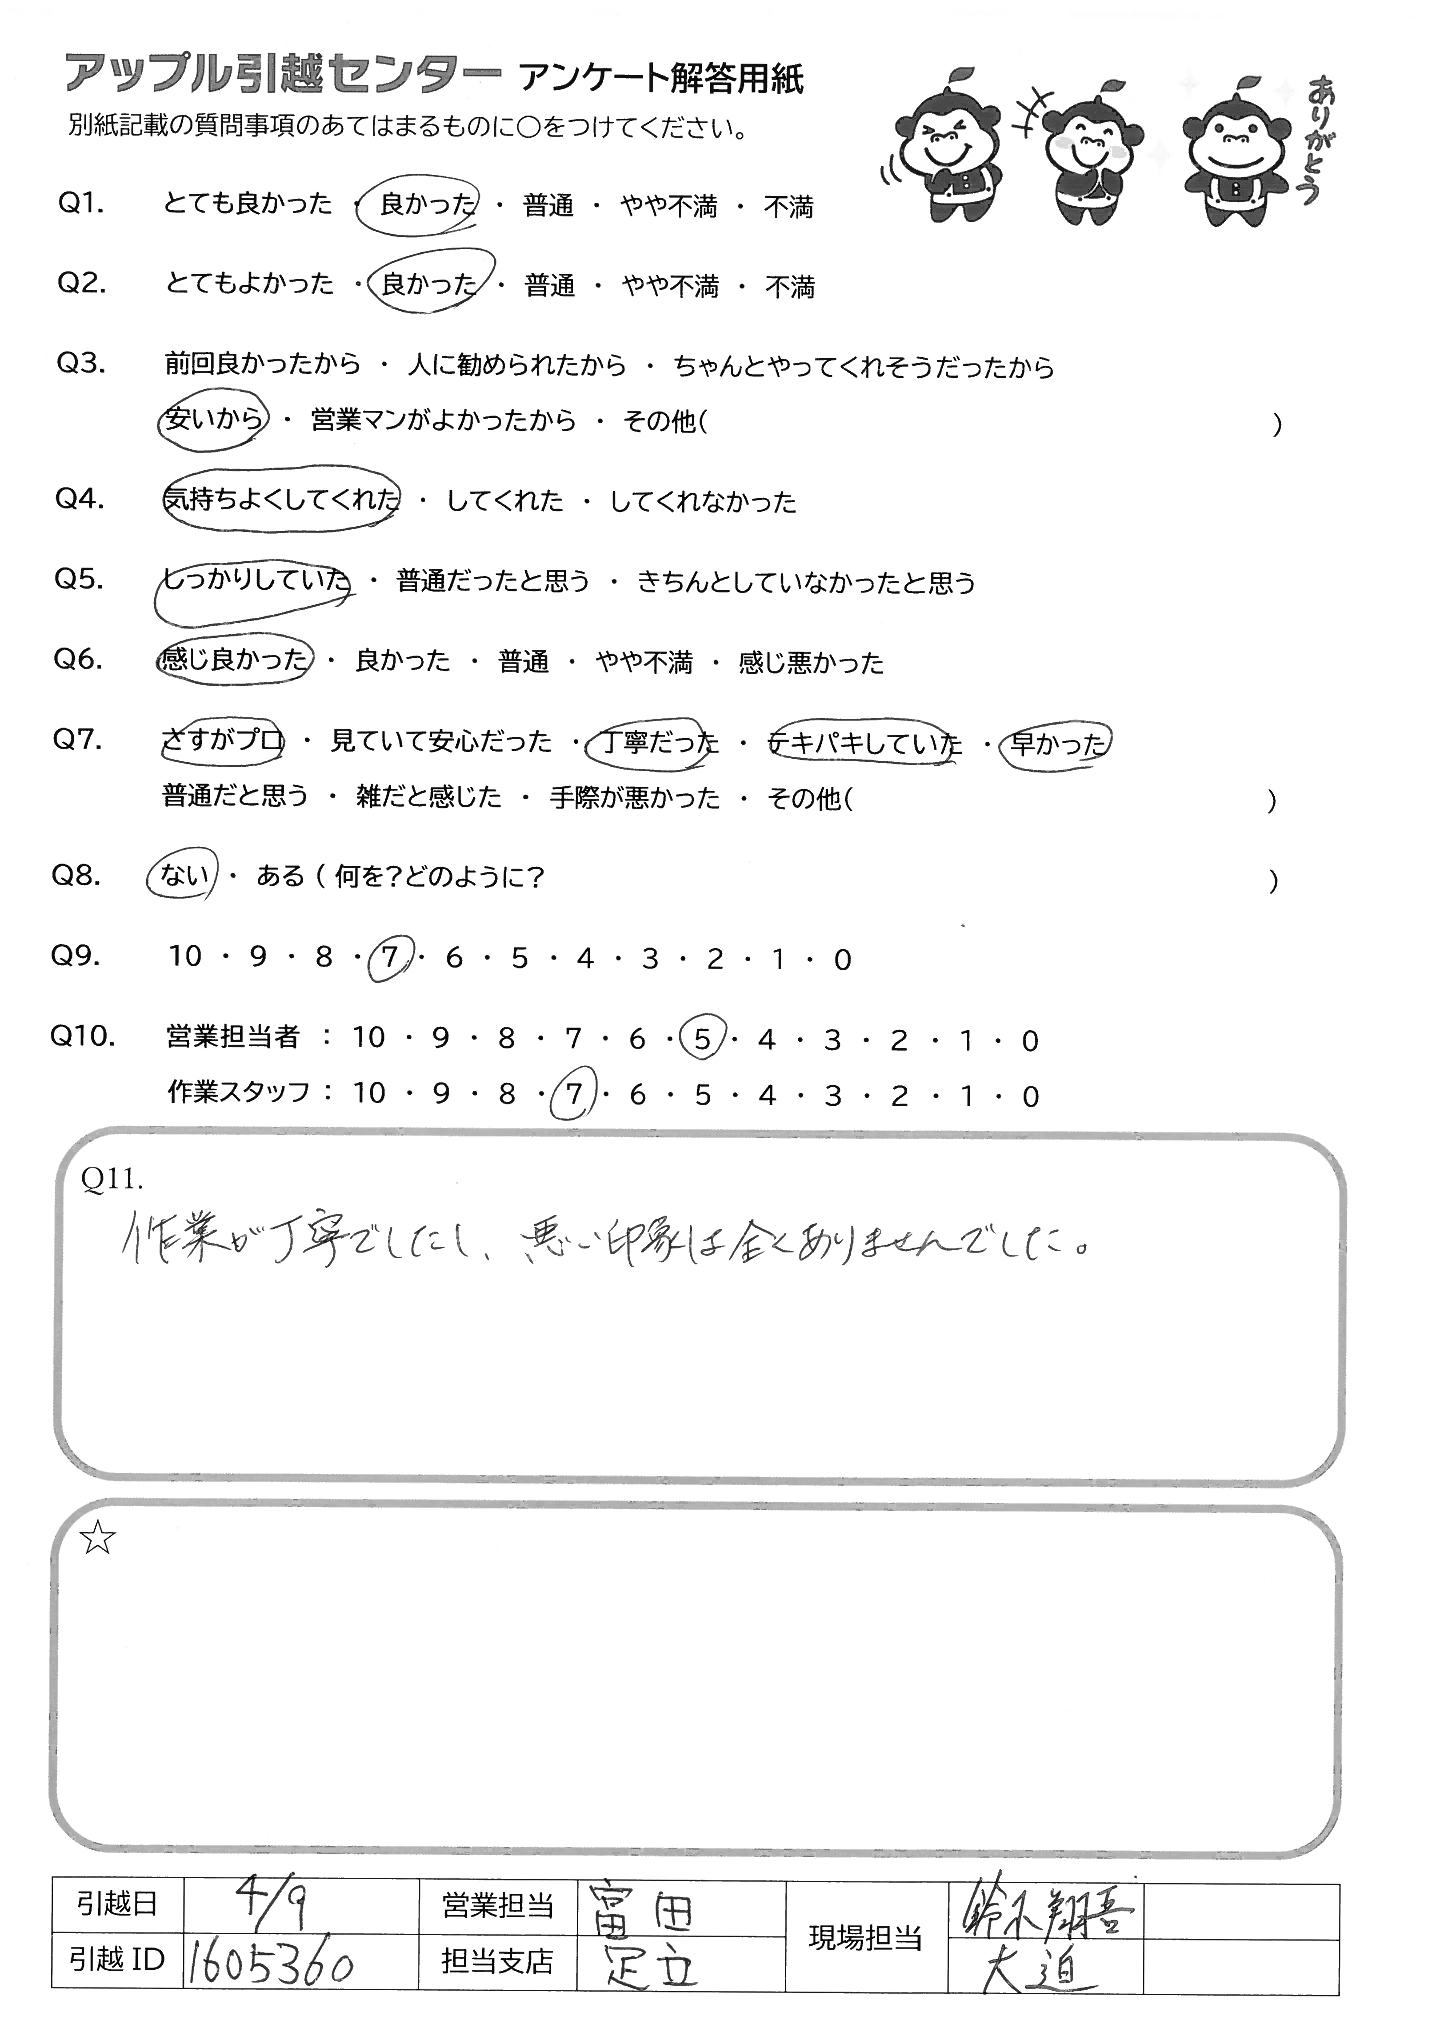 アップル引越センター アンケート解答用紙
別紙記載の質問事項のあてはまるものに○をつけてください。
ありがとう
Q1. とても良かった ・ 良かった ・ 普通 ・ やや不満 ・ 不満
Q2. とてもよかった ・ 良かった ・ 普通 ・ やや不満 ・ 不満
Q3. 前回良かったから ・ 人に勧められたから ・ ちゃんとやってくれそうだったから
安いから ・ 営業マンがよかったから ・ その他( )
Q4. 気持ちよくしてくれた ・ してくれた ・ してくれなかった
Q5. しっかりしていた ・ 普通だったと思う ・ きちんとしていなかったと思う
Q6. 感じ良かった ・ 良かった ・ 普通 ・ やや不満 ・ 感じ悪かった
Q7. さすがプロ ・ 見ていて安心だった ・ 丁寧だった ・ テキパキしていた ・ 早かった
普通だと思う ・ 雑だと感じた ・ 手際が悪かった ・ その他( )
Q8. ない ・ ある ( 何を?どのように? )
Q9. 10 ・ 9 ・ 8 ・ 7 ・ 6 ・ 5 ・ 4 ・ 3 ・ 2 ・ 1 ・ 0
Q10. 営業担当者 : 10 ・ 9 ・ 8 ・ 7 ・ 6 ・ 5 ・ 4 ・ 3 ・ 2 ・ 1 ・ 0
作業スタッフ : 10 ・ 9 ・ 8 ・ 7 ・ 6 ・ 5 ・ 4 ・ 3 ・ 2 ・ 1 ・ 0
Q11.
作業が丁寧でしたし、悪い印象は全くありませんでした。
☆
引越日 4/9 営業担当 富田 現場担当 鈴木翔吾
引越 ID 1605360 担当支店 足立 大迫